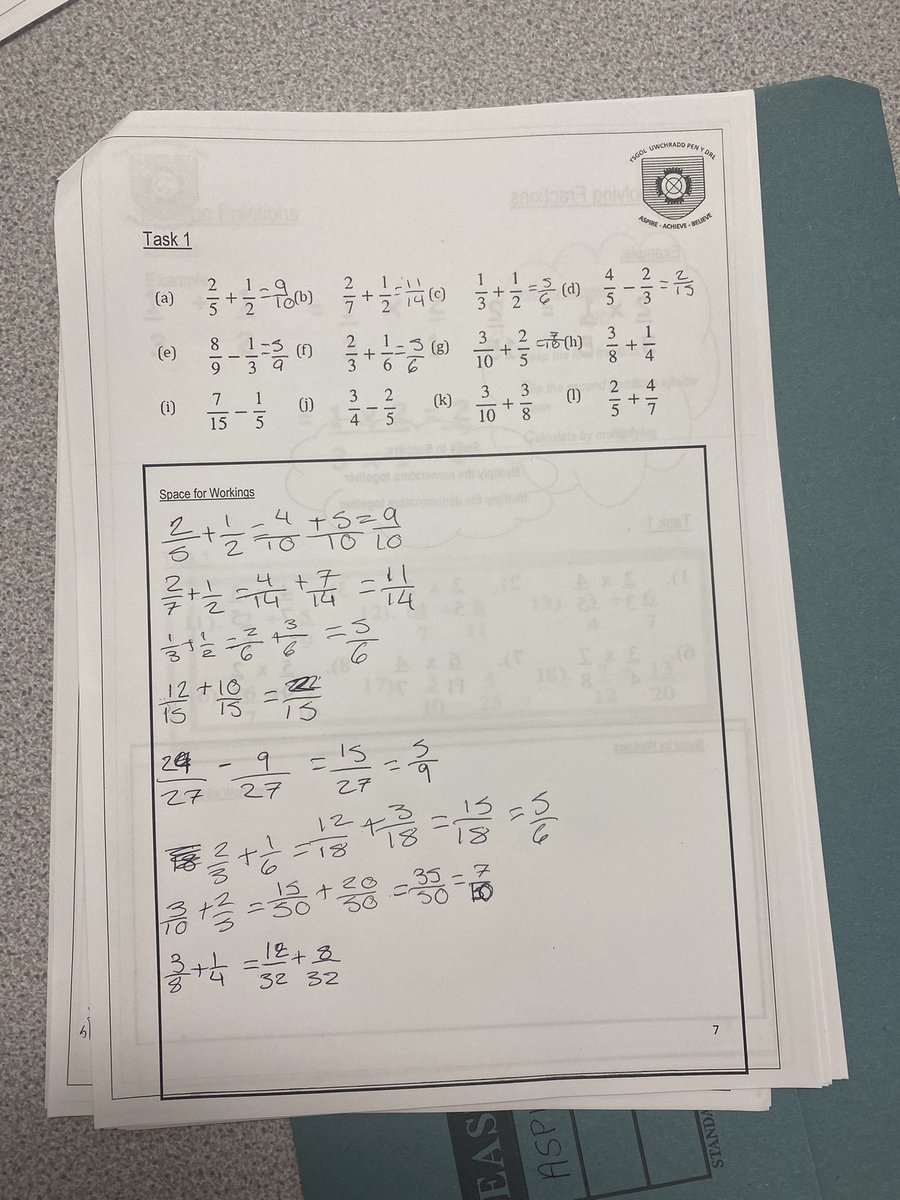 YSGOL UWCHRADD PEN Y DRE
ASPIRE - ACHIEVE - BELIEVE
Task 1
(a) 2/5 + 1/2 = 9/10 (b) 2/7 + 1/2 = 11/14 (c) 1/3 + 1/2 = 5/6 (d) 4/5 - 2/3 = 2/15
(e) 8/9 - 1/3 = 5/9 (f) 2/3 + 1/6 = 5/6 (g) 3/10 + 2/5 = 7/10 (h) 3/8 + 1/4
(i) 7/15 - 1/5 (j) 3/4 - 2/5 (k) 3/10 + 3/8 (l) 2/5 + 4/7
Space for Workings
2/5 + 1/2 = 4/10 + 5/10 = 9/10
2/7 + 1/2 = 4/14 + 7/14 = 11/14
1/3 + 1/2 = 2/6 + 3/6 = 5/6
12/15 + 10/15 = 22/15
24/27 - 9/27 = 15/27 = 5/9
2/3 + 1/6 = 12/18 + 3/18 = 15/18 = 5/6
3/10 + 2/5 = 15/50 + 20/50 = 35/50 = 7/10
3/8 + 1/4 = 12/32 + 8/32
7
EAS
ASP
STANDA